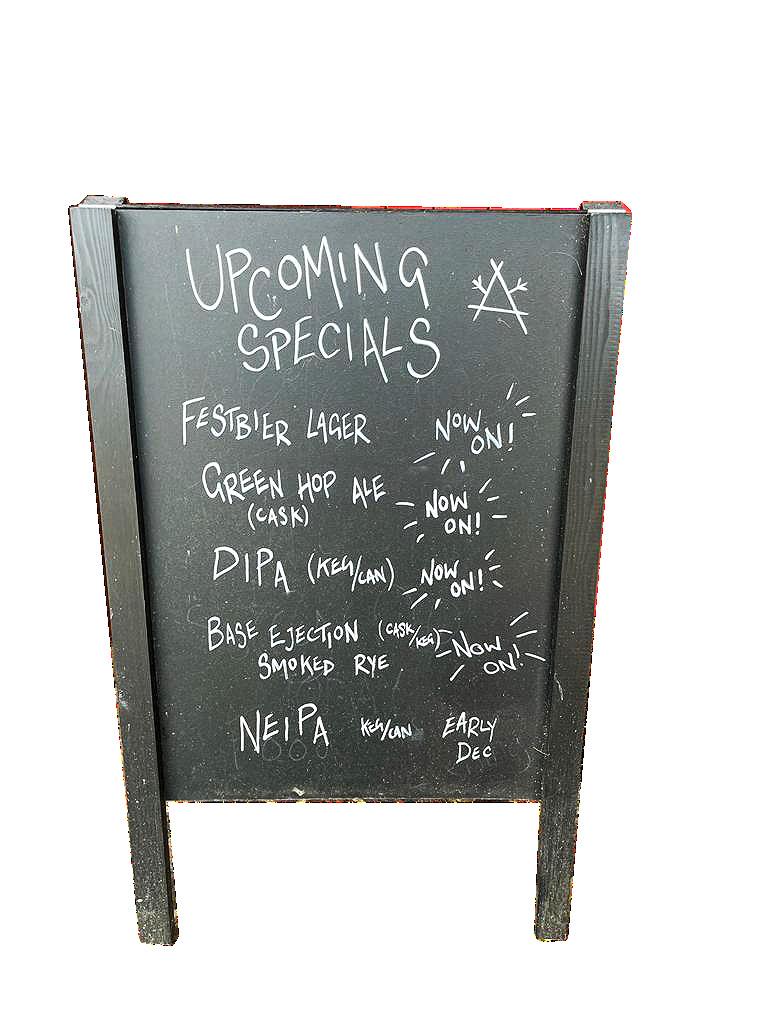 UPCOMING
SPECIALS
FESTBIER LAGER NOW
ON!
GREEN HOP ALE NOW
(CASK) ON!
DIPA (KEG/CAN) NOW
ON!
BASE EJECTION (CASK/KEG) NOW
SMOKED RYE ON!
NEIPA KEG/CAN EARLY
DEC